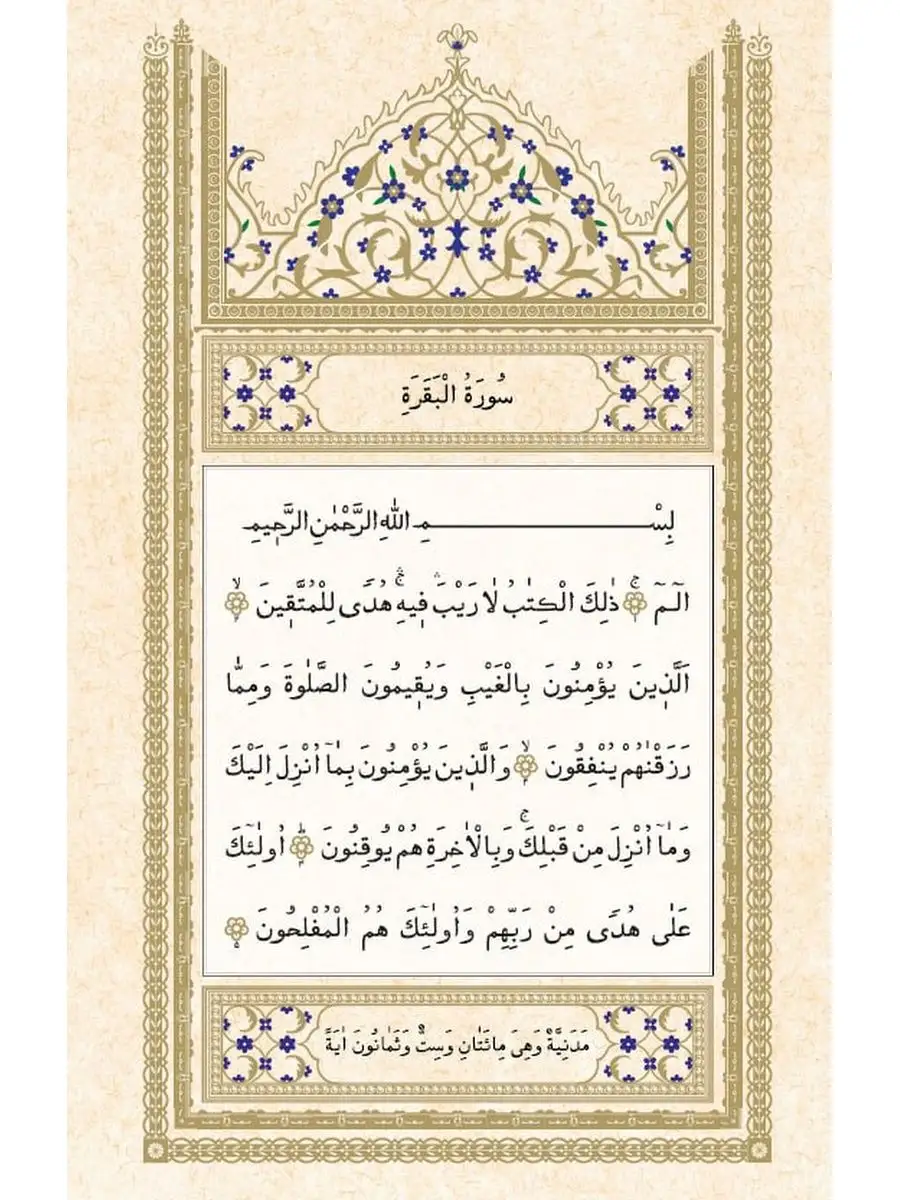 سُورَةُ الْبَقَرَةِ
بِسْــــــــــــــــــمِ اللّٰهِ الرَّحْمٰنِ الرَّحٖيمِ
الٓـمٓ ۚ ذٰلِكَ الْكِتٰبُ لَا رَيْبَۛ فٖيهِۚۛ هُدًى لِلْمُتَّقٖينَۙ
اَلَّذٖينَ يُؤْمِنُونَ بِالْغَيْبِ وَيُقٖيمُونَ الصَّلٰوةَ وَمِمَّا
رَزَقْنٰهُمْ يُنْفِقُونَۙ وَالَّذٖينَ يُؤْمِنُونَ بِمَٓا اُنْزِلَ اِلَيْكَ
وَمَٓا اُنْزِلَ مِنْ قَبْلِكَۚ وَبِالْاٰخِرَةِ هُمْ يُوقِنُونَؕ اُولٰٓئِكَ
عَلٰى هُدًى مِنْ رَبِّهِمْ وَاُولٰٓئِكَ هُمُ الْمُفْلِحُونَ
مَدَنِيَّةٌ وَهِىَ مِائَتَانِ وَسِتٌّ وَثَمَانُونَ اٰيَةً